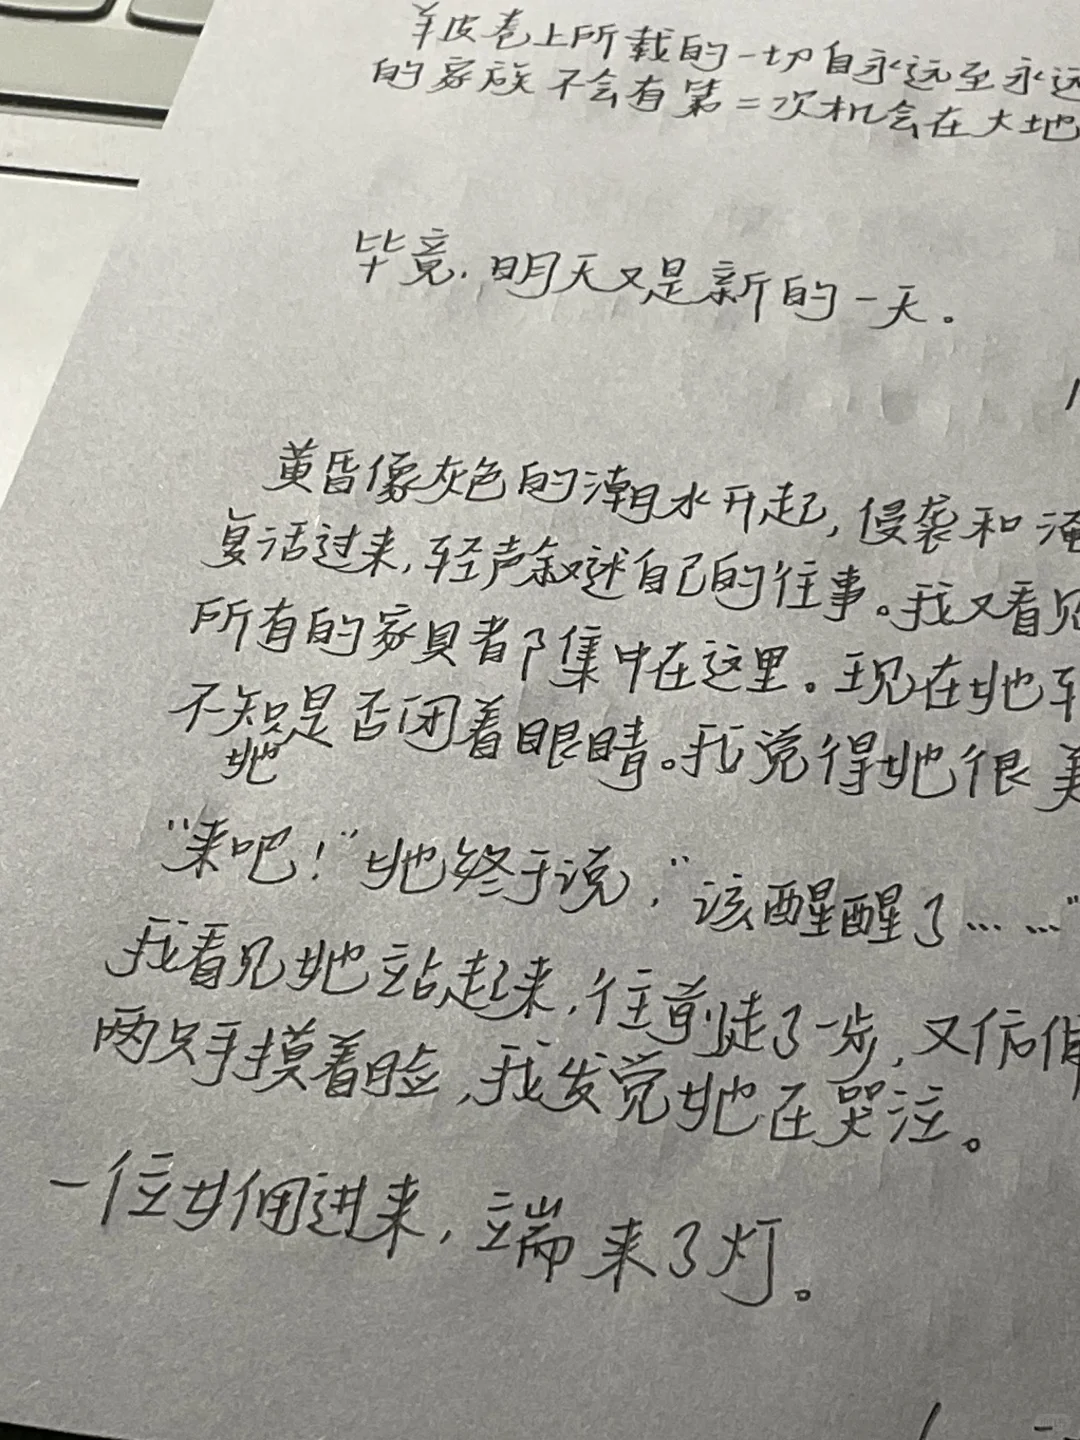 羊皮卷上所载的一切自永远至永远
的家族不会有第二次机会在大地
毕竟，明天又是新的一天。
黄昏像灰色的潮水升起，侵袭和淹
复活过来，轻声叙述自己的往事。我又看见
所有的家具者都集中在这里。现在她
不知是否闭着眼睛。我觉得她很美
她
“来吧！”她终于说，“该醒醒了……”
我看见她站起来，往前走了一步，又
两只手摸着脸，我发觉她在哭泣。
一位女佣进来，端来了灯。